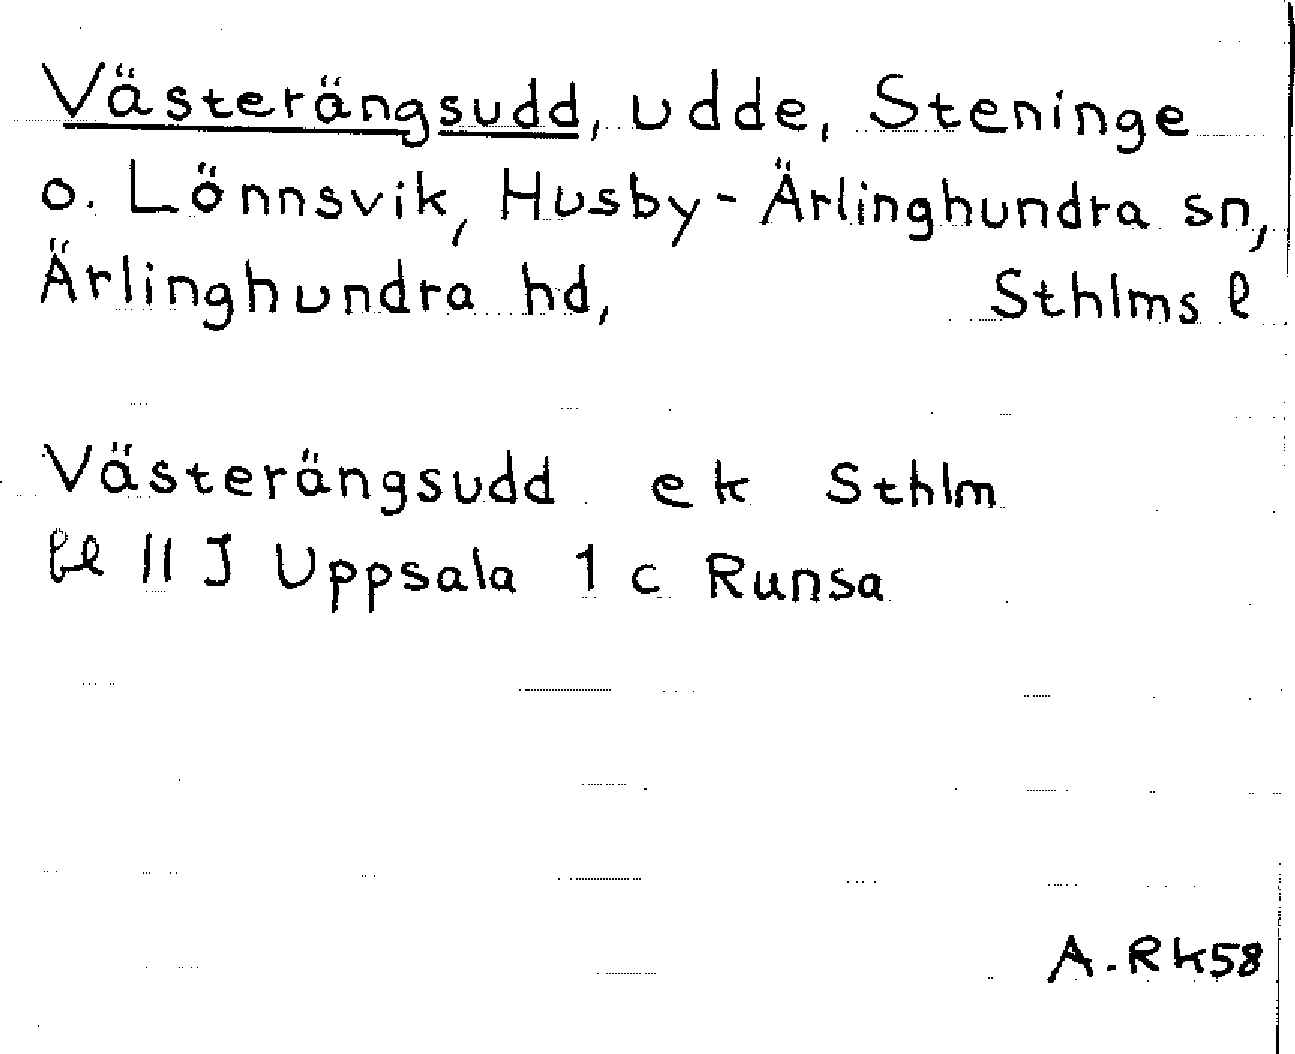 Västerängsudd, udde, Steninge
o. Lönnsvik, Husby-Ärlinghundra sn,
Ärlinghundra hd, Sthlms l
Västerängsudd ek Sthlm
bl 11 J Uppsala 1 c Runsa
A.RK58